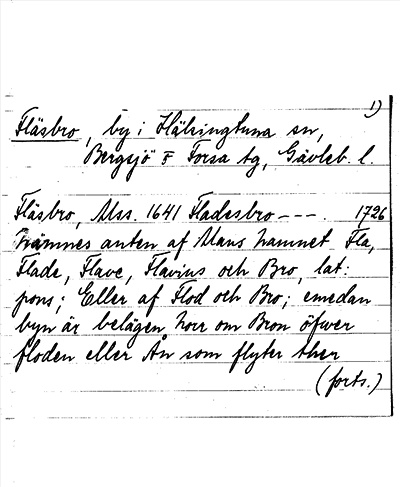 1)
Fläsbro, by i Hälsingtuna sn,
Bergsjö o Forsa tg, Gävleb. l.
Fläsbro, Mss. 1641 Fladesbro ---. 1726
nämnes anten af Mans namnet Fla,
Flade, Flave, Flavius och Bro, lat:
pons; Eller af Flod och Bro; emedan
byn är belägen norr om Bron öfwer
floden eller Ån som flyter ther
(forts.)